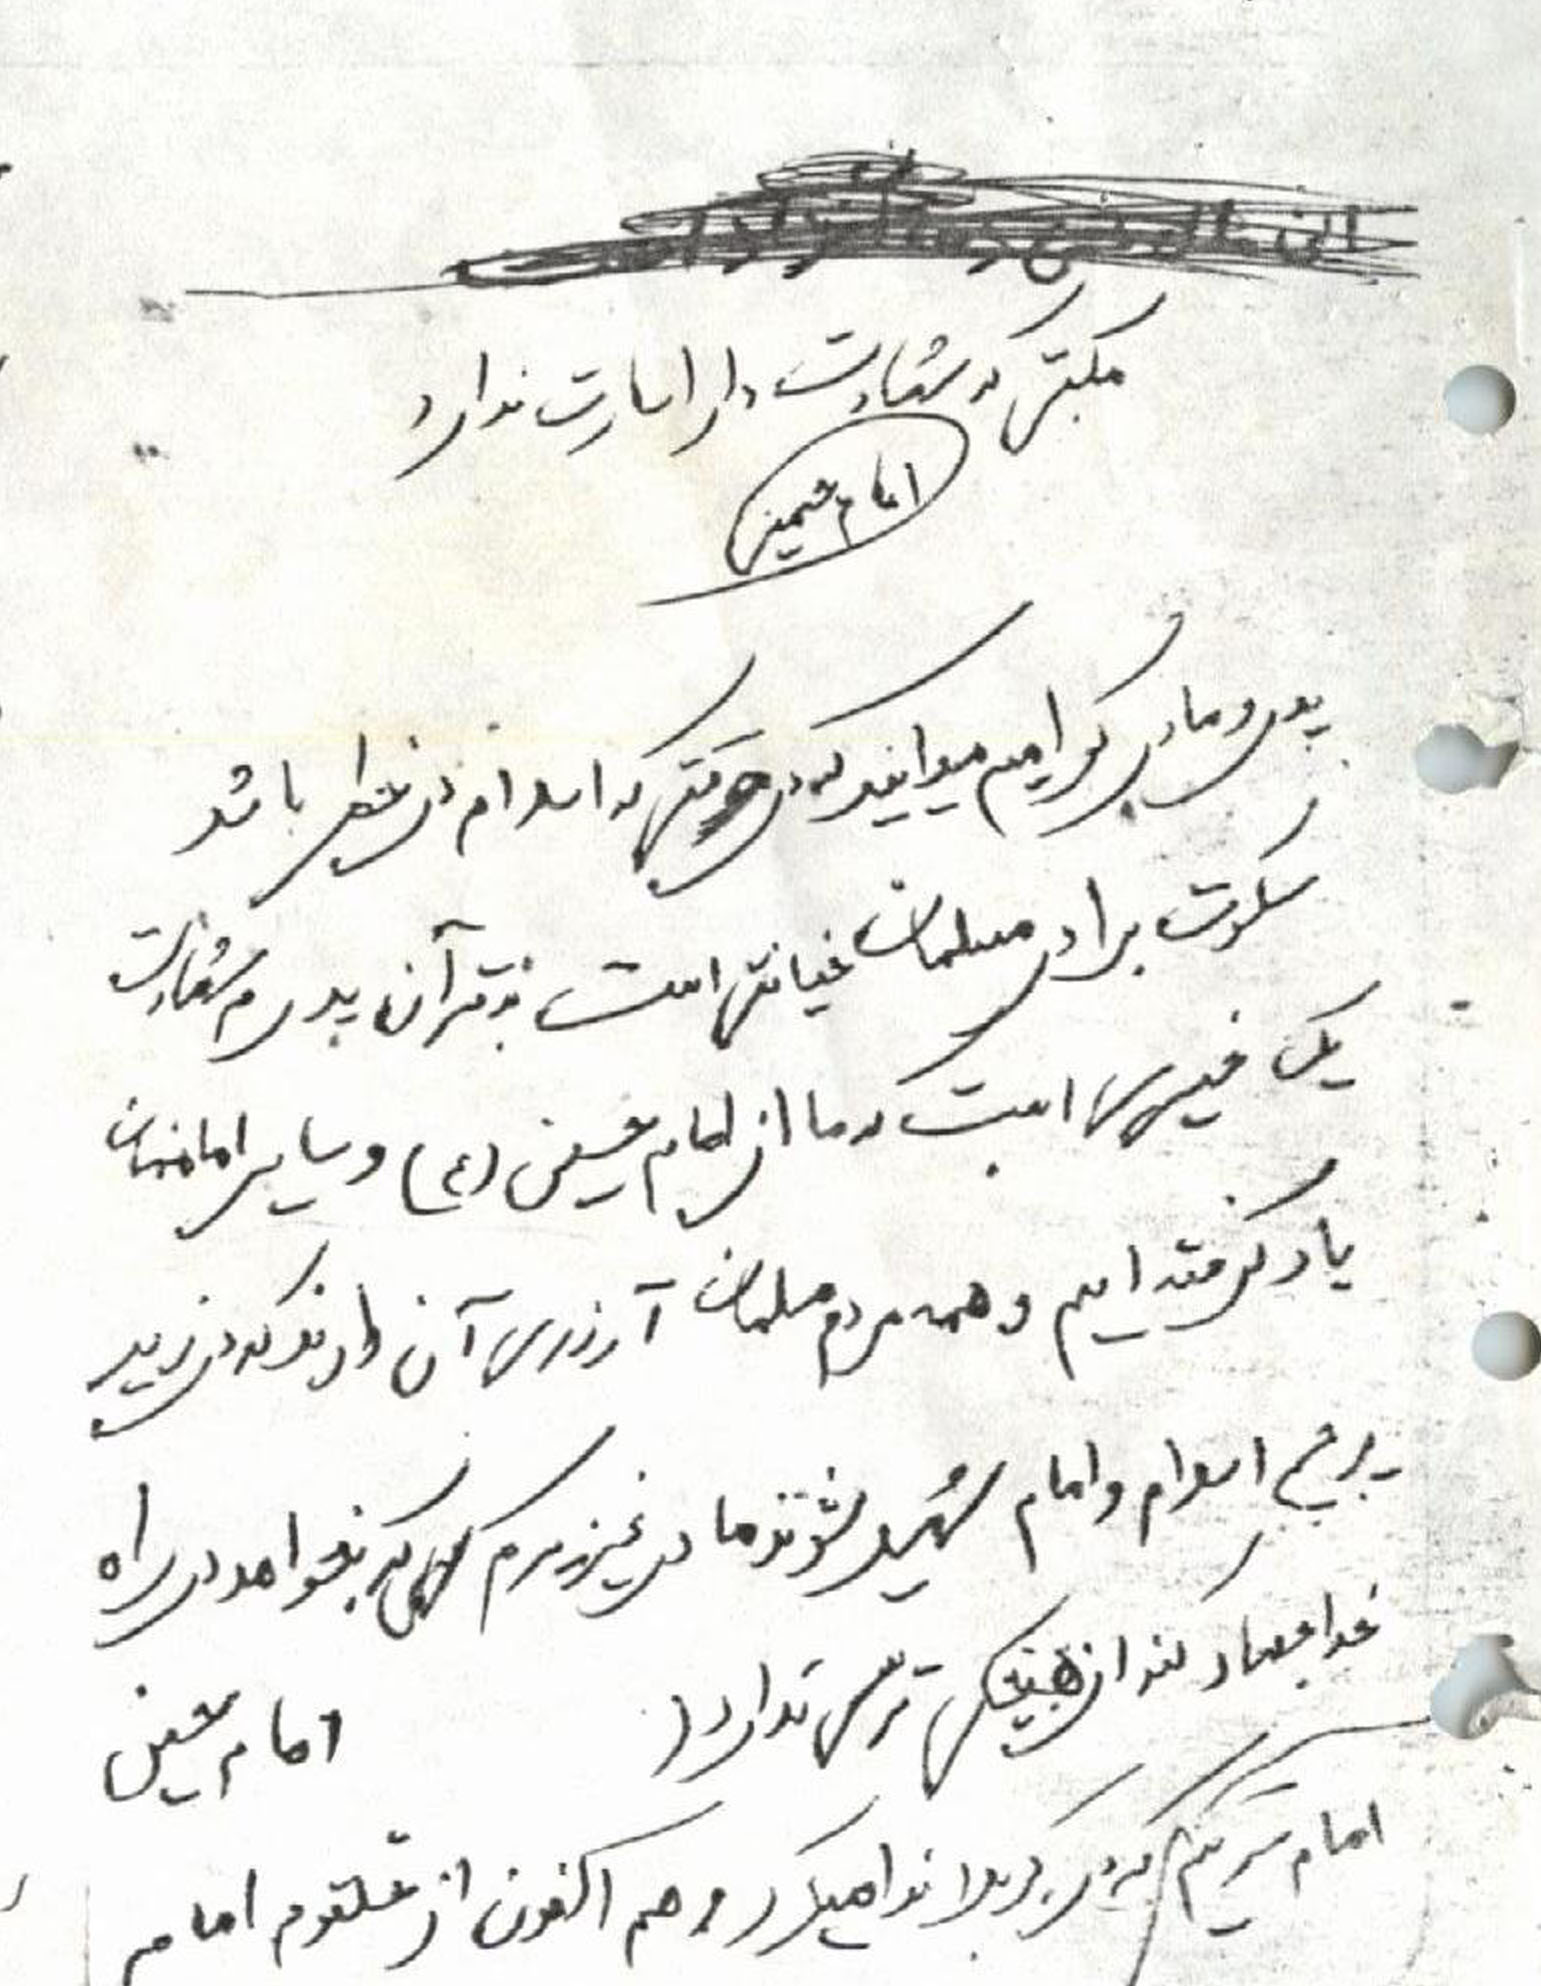 مکتبی که شهادت دارد اسارت ندارد
امام خمینی
پدر و مادر گرامیم میدانید که در هر وقتی که اسلام در خطر باشد
سکوت برادر مسلمان خیانتی است به قرآن پدرم شهادت
یک چیزی است که ما از امام حسین (ع) و سایر امامان
یاد گرفته ایم و همه مردم مسلمان آرزوی آن دارند که در زیر
پرچم اسلام و امام شهید شوند مادر عزیزم کسی که بخواهد در راه
خدا جهاد کند از هیچکس ترسی ندارد امام حسین
امام که در کربلا ندا میکرد و هم اکنون از حلقوم امام